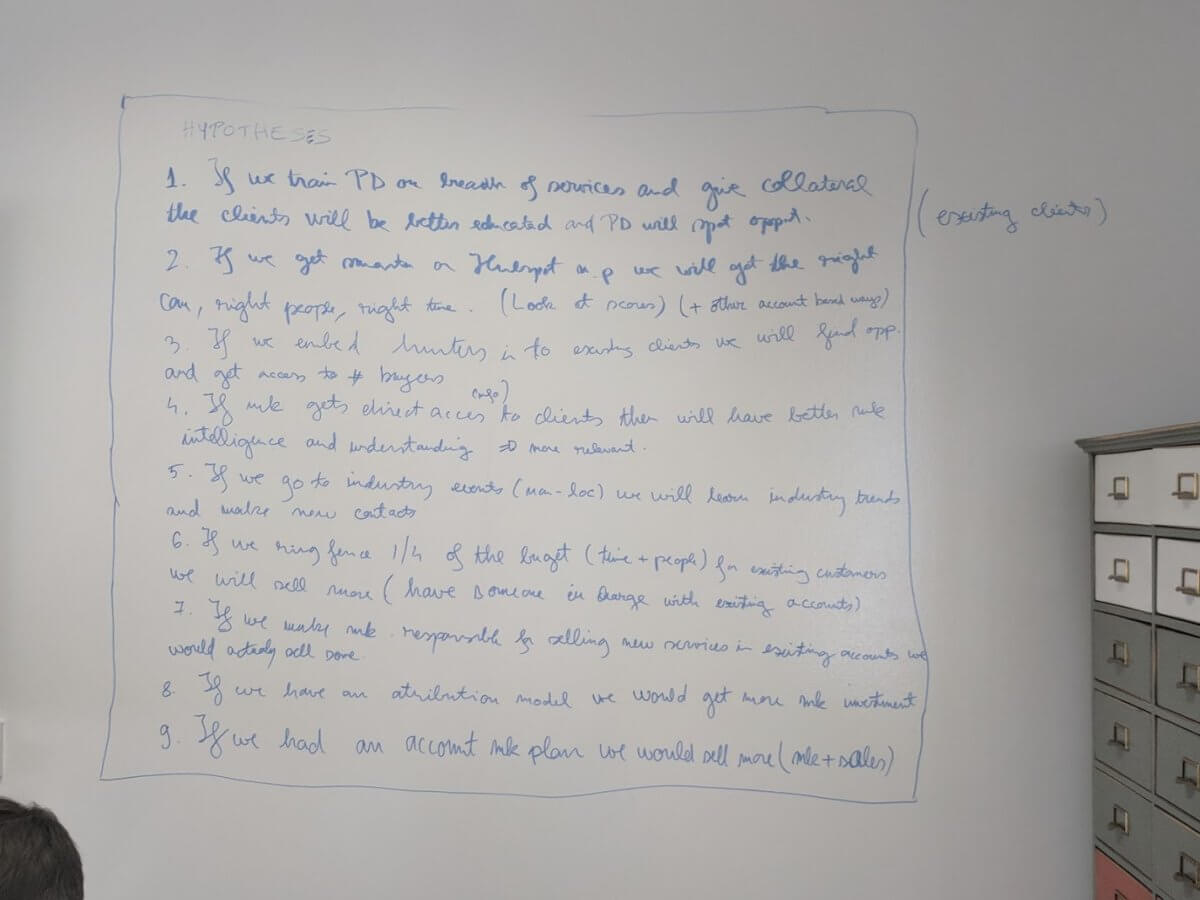 HYPOTHESES
1. If we train PD on breadth of services and give collateral
the clients will be better educated and PD will spot opport.
(existing clients)
2. If we get smarter on Hubspot we will get the right
right people, right time. (Look at scores) (+ other account based ways)
3. If we embed hunters in to existing clients we will find opp.
and get access to # buyers
4. If mk gets direct acces to clients then will have better mk
intelligence and understanding => more relevant.
5. If we go to industry events (non-loc) we will learn industry trends
and make new contacts
6. If we ring fence 1/4 of the buget (time + people) for existing customers
we will sell more (have someone in charge with existing accounts)
7. If we make mk. responsible for selling new services in existing accounts we
would actualy sell
8. If we have an atribution model we would get more mk investment
9. If we had an account mk plan we would sell more (mk + sales)